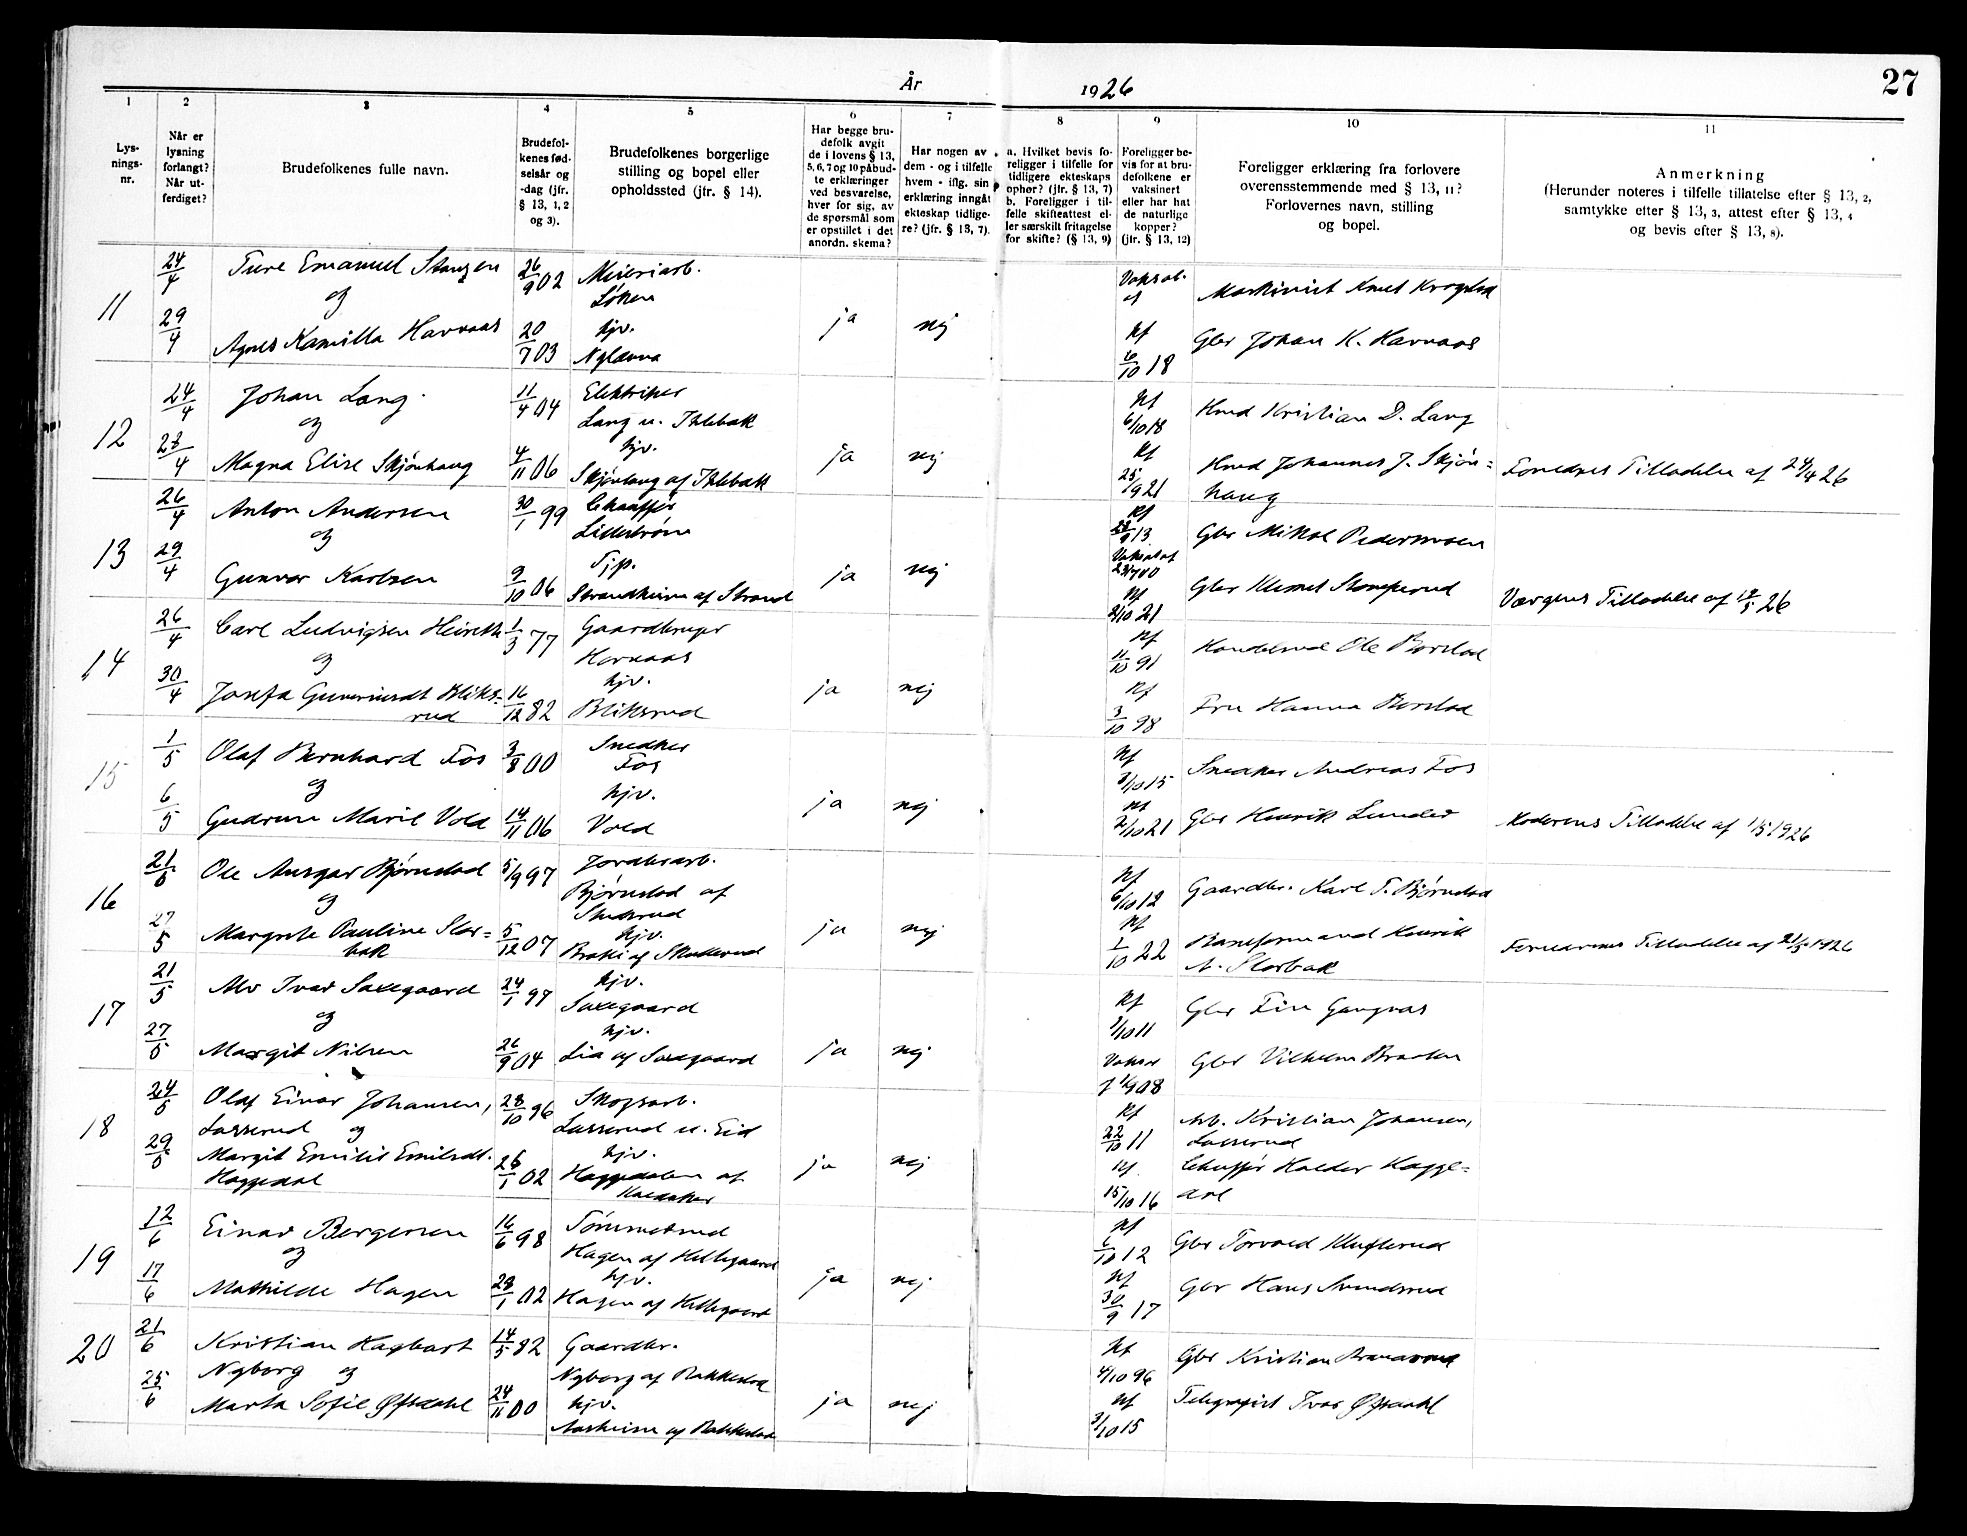 År 1926
27
1 2 3 4 5 6 7 8 9 10 11
Lysningsnr.
Når er lysning forlangt? Når utferdiget?
Brudefolkenes fulle navn.
Brudefolkenes fødselsår og -dag (jfr. § 13, 1, 2 og 3).
Brudefolkenes borgerlige stilling og bopel eller opholdssted (jfr. § 14).
Har begge brudefolk avgit de i lovens § 13, 5, 6, 7 og 10 påbudte erklæringer ved besvarelse, hver for sig, av de spørsmål som er opstillet i det anordn. skema?
Har nogen av dem - og i tilfelle hvem - iflg. sin erklæring inngåt ekteskap tidligere? (jfr. § 13, 7).
a. Hvilket bevis foreligger i tilfelle for tidligere ekteskaps ophør? (jfr. § 13, 7) b. Foreligger i tilfelle skifteattest eller særskilt fritagelse for skifte? (§ 13, 9)
Foreligger bevis for at brudefolkene er vaksinert eller har hat de naturlige kopper? (jfr. § 13, 12)
Foreligger erklæring fra forlovere overensstemmende med § 13, 11? Forlovernes navn, stilling og bopel.
Anmerkning (Herunder noteres i tilfelle tillatelse efter § 13, 2, samtykke efter § 13, 3, attest efter § 13, 4 og bevis efter § 13, 8).
11 24/4 Ture Emanuel 26/9 02 Meieriarb. Løken
og
29/4 Agnes Kamilla Havnaas 20/7 03 hjv. ja nej
Maskinist Knut Krogstad
Kf 6/10 18 Gbr Johan K. Havnaas
12 24/4 Johan Lang 11/4 04 Elektriker
og Lang
28/4 Magna Elise Skjønhaug 4/11 06 hjv. Skjønhaug ja nej
Kf 6/10 18 Kristian D. Lang
Kf 25/9 21 Johannes J. Skjønhaug
Tilladelse af 24/4 26
13 26/4 Anton Andersen 30/1 99 Chauffør Lillestrøm
og
29/4 Gunvor Karlsen 9/10 06 Tjp. Strandheim af Strand ja nej
Gbr Mikal Pedersmoen
Kf 2/10 21 Gbr
Værgens Tilladelse af 26
14 26/4 Carl Ludvigsen 1/3 77 Gaardbruger Havnaas
og
30/4 Josefa Guneriusdt Bliksrud 16/12 82 hjv. Bliksrud ja nej
Kf 11/10 91 Ole Borstad
Kf 3/10 98 Fru Hanna Borstad
15 1/5 Olaf Bernhard Fos 3/8 00 Snedker Fos
og
6/5 Gudrun Marie Vold 14/11 06 hjv. Vold ja nej
Kf 3/10 15 Snedker Andreas Fos
Kf 2/10 21 Gbr Henrik Lunder
Moderens Tilladelse af 1/5 1926
16 21/5 Ole Ansgar Bjørnstad 5/9 97 Jordbrarb. Bjørnstad af
og
27/5 Margrete Pauline Slorbak 5/12 07 hjv. ja nej
Kf 6/10 12 Gaardbr. Karl T. Bjørnstad
Kf 1/10 22 Baneformand Henrik A. Slorbak
Tilladelse af 21/5 1926
17 21/5 Alv Ivar Saxegaard 24/1 97 hjv. Saxegaard
og
27/5 Margit Nilsen 26/9 04 hjv. Lia af Saxegaard ja nej
Kf 3/10 11 Gbr Finn
Gbr Vilhelm Braaten
18 24/5 Olaf Einar Johansen, 28/10 96 Skogsarb.
Lasserud og Lasserud u. Eid
29/5 Margit Emilie Emilsdt. Haggedal 26/1 02 hjv. Haggedalen af ja nej
Kf 22/10 11 Arb. Kristian Johansen, Lasserud
Kf 15/10 16 Chuffør Halder Haggedal
19 12/6 Einar Bergersen 16/6 98 Tømmermand
og Hagen af Hellegaard
17/6 Mathilde Hagen 28/1 02 hjv. Hagen af Hellegaard ja nej
Kf 6/10 12 Gbr Torvald
Kf 30/9 17 Gbr Hans Svendsrud
20 21/6 Kristian Hagbart 14/5 82 Gaardbr.
Nyborg og Nyborg af Rakkestad
25/6 Marta Sofie Øfsdahl 24/11 00 hjv. Aasheim af Rakkestad ja nej
Kf 4/10 96 Gbr Kristian
Kf 3/10 15 Telegrafist Ivar Øfsdahl